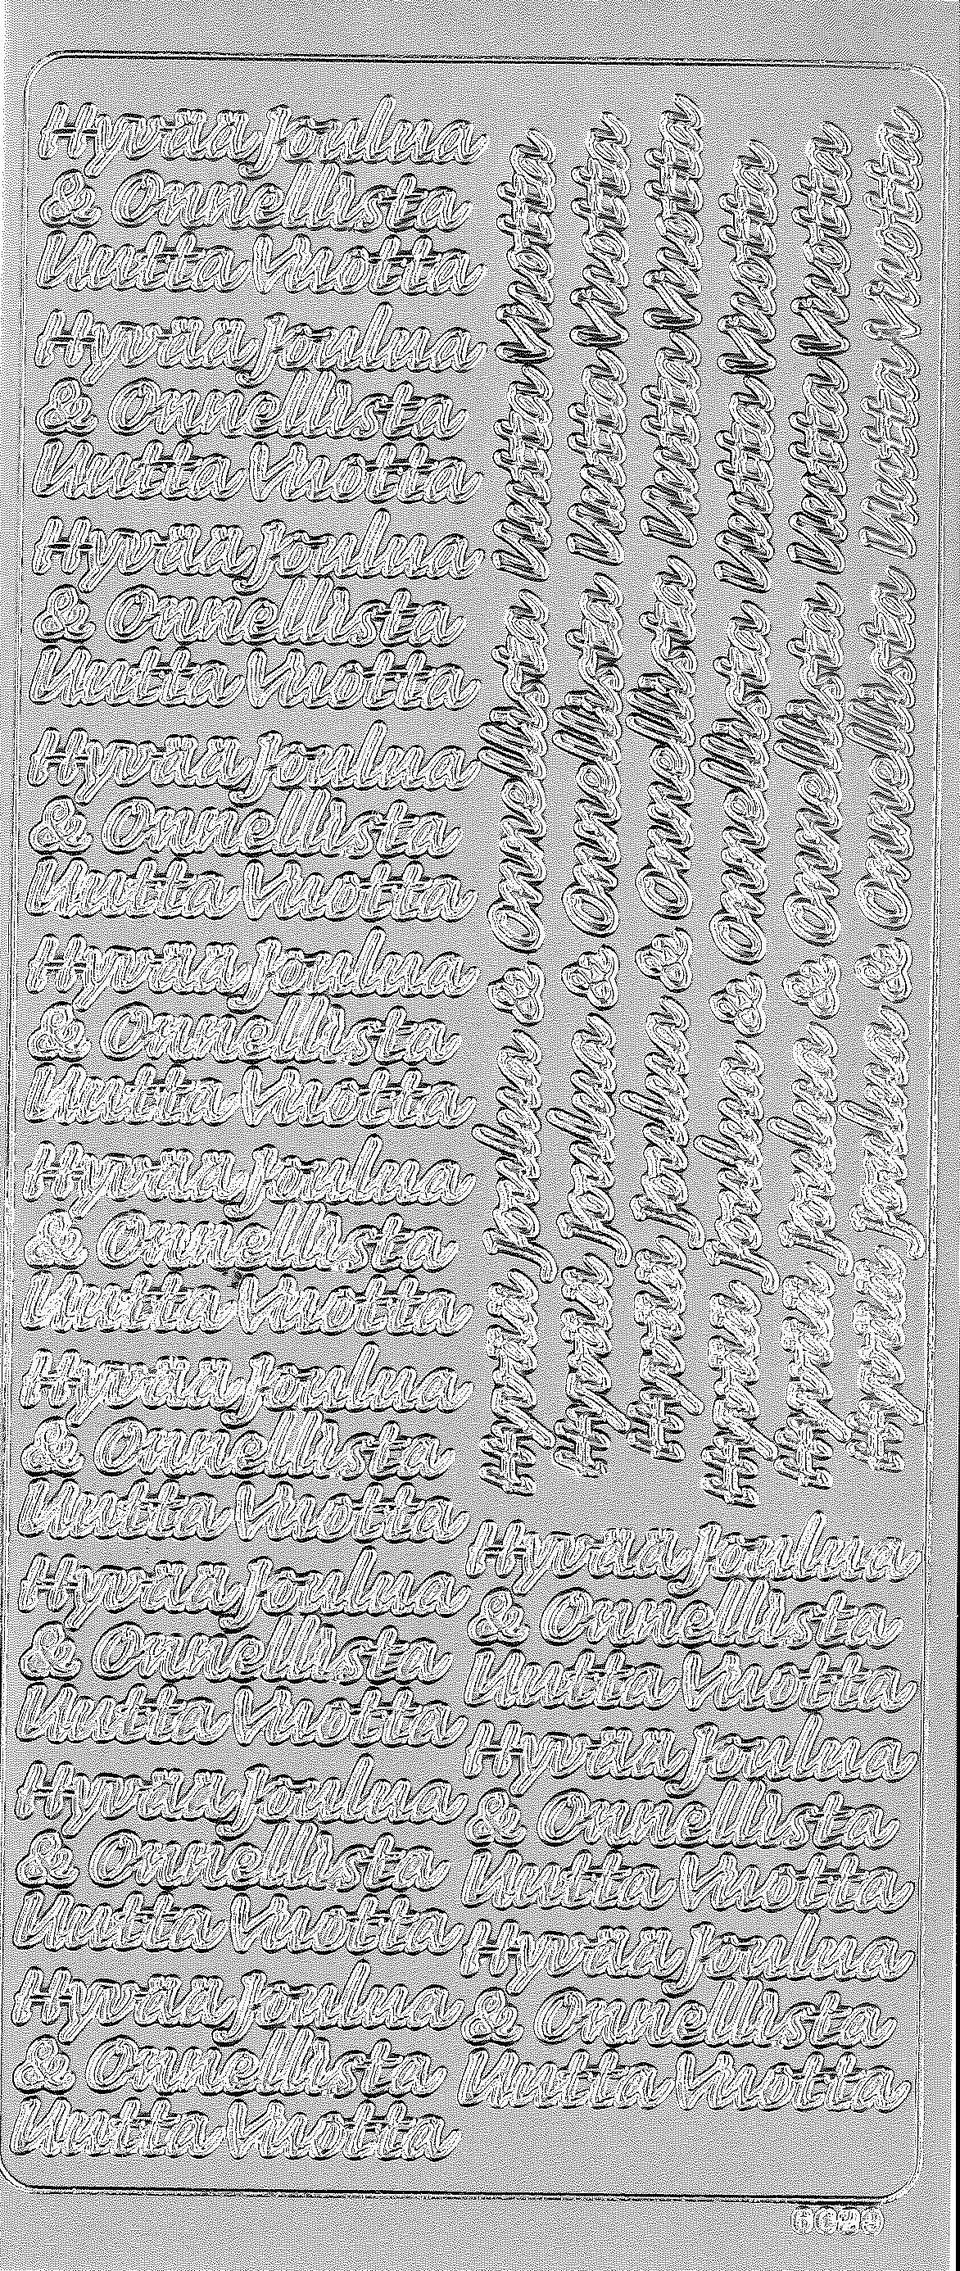 Hyvää Joulua
& Onnellista
Uutta Vuotta
Hyvää Joulua
& Onnellista
Uutta Vuotta
Hyvää Joulua
& Onnellista
Uutta Vuotta
Hyvää Joulua
& Onnellista
Uutta Vuotta
Hyvää Joulua
& Onnellista
Uutta Vuotta
Hyvää Joulua
& Onnellista
Uutta Vuotta
Hyvää Joulua
& Onnellista
Uutta Vuotta
Hyvää Joulua
& Onnellista
Uutta Vuotta
Hyvää Joulua
& Onnellista
Uutta Vuotta
Hyvää Joulua
& Onnellista
Uutta Vuotta
Hyvää Joulua & Onnellista Uutta Vuotta
Hyvää Joulua & Onnellista Uutta Vuotta
Hyvää Joulua & Onnellista Uutta Vuotta
Hyvää Joulua & Onnellista Uutta Vuotta
Hyvää Joulua & Onnellista Uutta Vuotta
Hyvää Joulua & Onnellista Uutta Vuotta
Hyvää Joulua
& Onnellista
Uutta Vuotta
Hyvää Joulua
& Onnellista
Uutta Vuotta
Hyvää Joulua
& Onnellista
Uutta Vuotta